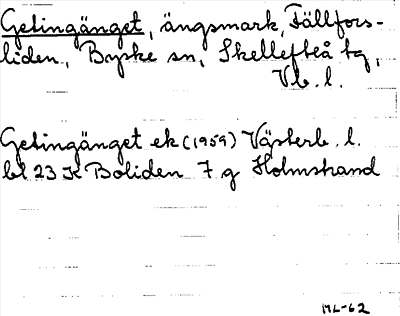 Getingänget, ängsmark, Fällfors-
liden, Byske sn, Skellefteå tg,
Vb. l.
Getingänget ek (1959) Västerb. l.
bl 23 K Boliden 7 g Holmstrand
ML-62